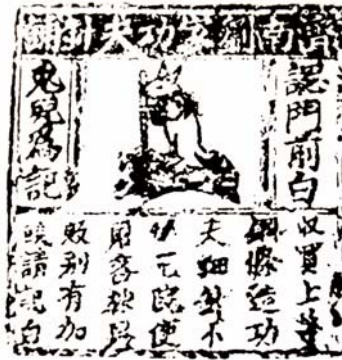 濟南劉家功夫針鋪
認門前白
兔兒爲記
收買上等
鋼條造功
夫細針不
宅院使
客
販別有加
饒請記白